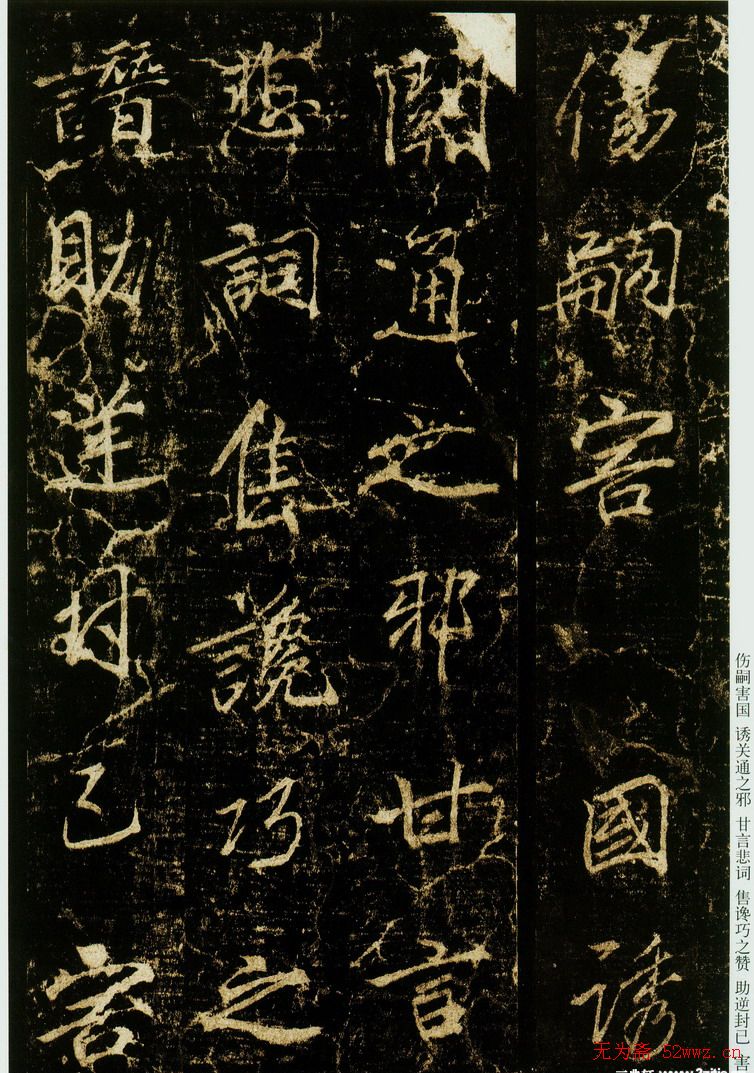 傷嗣害國誘
關通之邪甘言
悲詞售讒巧之
譖助逆封己害
伤嗣害国 诱关通之邪 甘言悲词 售谗巧之赞 助逆封已 害
无为斋·52wwz.cn